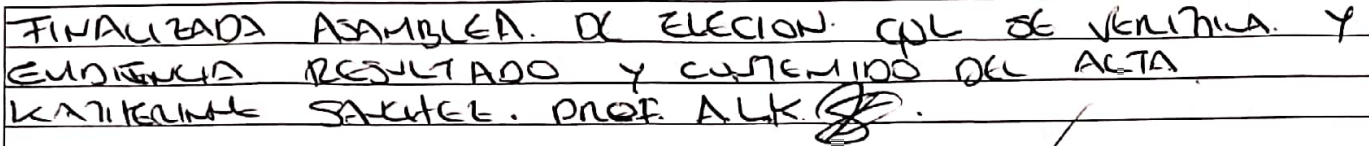 FINALIZADA ASAMBLEA. DE ELECION. QUE SE VERIFICA. Y
EVIDENCIA RESULTADO Y CONTENIDO DEL ACTA
KATHERINNE SANCHEZ. PROF. ALK.